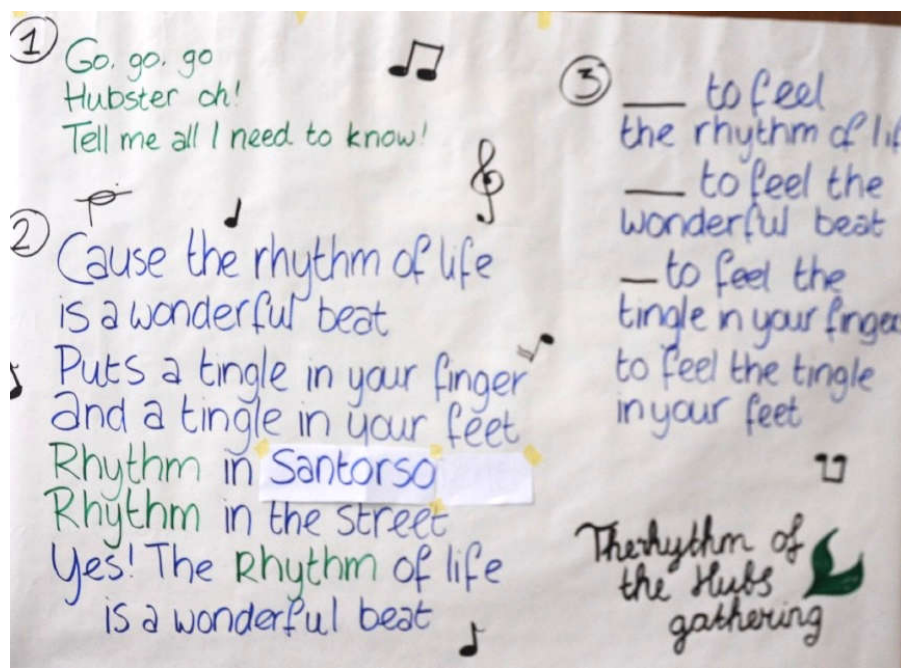 1
Go, go, go
Hubster oh!
Tell me all I need to know!
2
Cause the rhythm of life
is a wonderful beat
Puts a tingle in your finger
and a tingle in your feet
Rhythm in Santorso
Rhythm in the street
Yes! The Rhythm of life
is a wonderful beat
3
___ to feel
the rhythm of li
___ to feel the
wonderful beat
_ to feel the
tingle in your finge
to feel the tingle
in your feet
The rhythm of
the Hubs
gathering